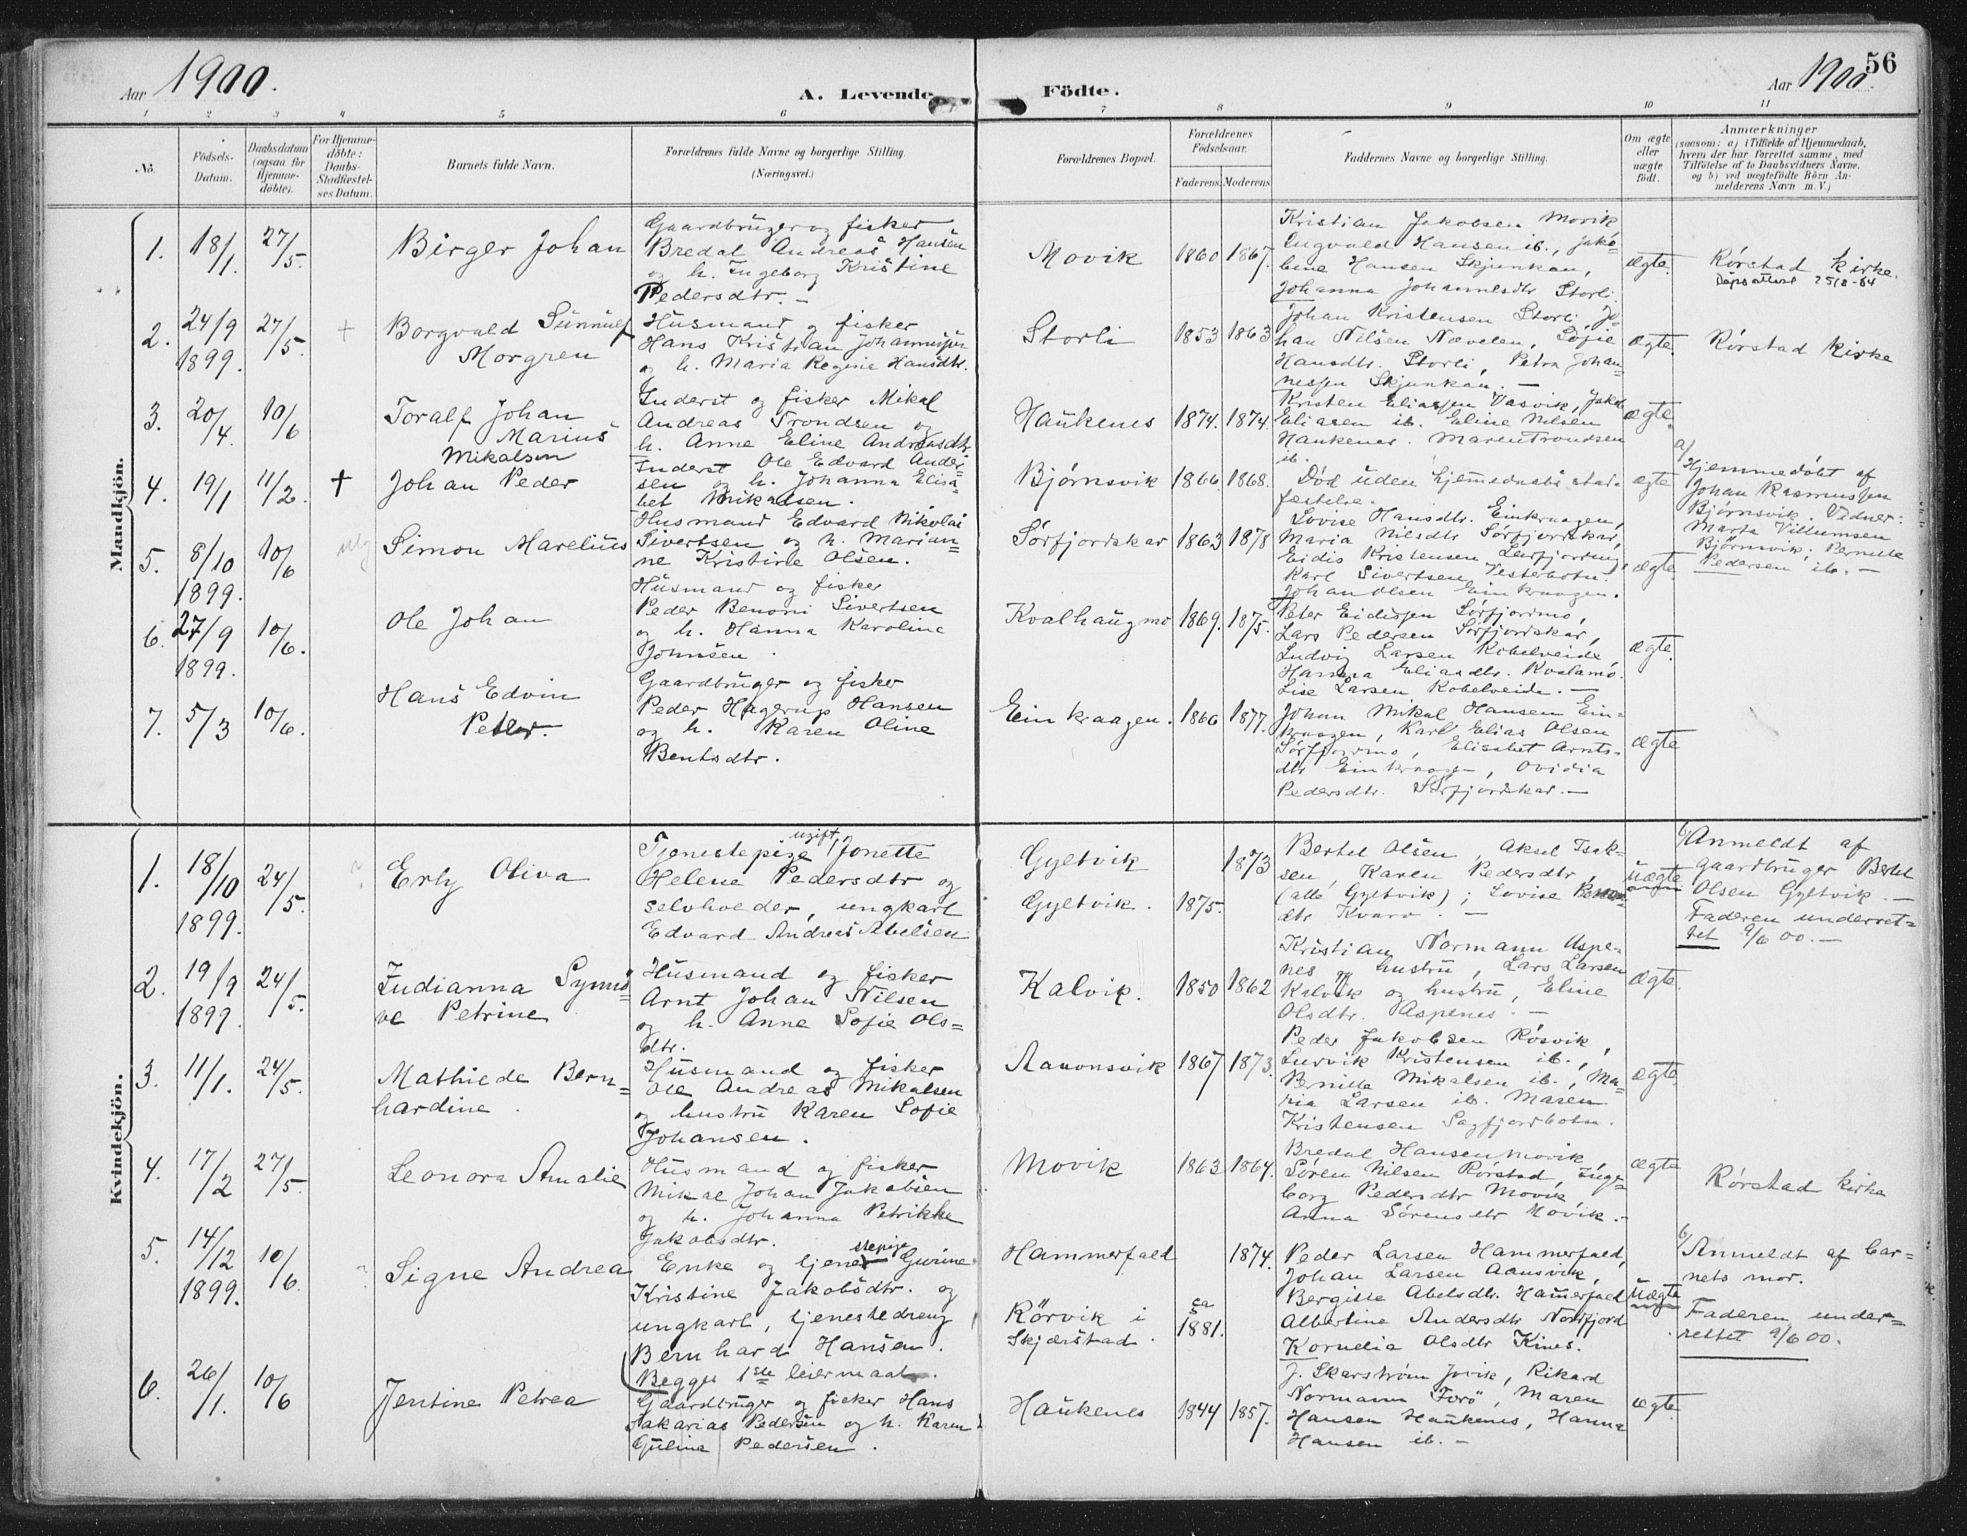 Aar 1900.
A. Levende Födte.
Aar 1900.
56
1 2 3 4 5 6 7 8 9 10 11
No.
Födsels-Datum.
Daabsdatum (ogsaa for Hjemme-döbte).
For Hjemme-döbte: Daabs-Stadfæstel-ses Datum.
Barnets fulde Navn.
Forældrenes fulde Navne og borgerlige Stilling.
(Næringsvei.)
Forældrenes Bopæl.
Forældrenes Födselsaar.
Faderens. Moderens.
Faddernes Navne og borgerlige Stilling.
Om ægte eller uægte födt.
Anmærkninger
(saasom: a) i Tilfælde af Hjemmedaab, hvem der har forrettet samme, med Tilföielse af to Daabsvidners Navne, og b) ved uægtefödte Börn An-melderens Navn m. V.)
Mandkjön.
1. 18/1. 27/5. Birger Johan
Gaardbruger og fisker
Bredal Andreas Hansen
og h. Ingeborg Kristine
Pedersdtr. -
Movik 1860 1867.
Kristian Jakobsen Movik
Ingvald Hansen ib., Jako-
bine Hansen Skjunkan,
Johanna Johannesdtr Storli.
ægte.
Rørstad kirke.
Dåpsattest 25/8-54
2. 24/9 1899. 27/5. +
Borgvald Sünnulf
Morgren
Husmand og fisker
Hans Kristian Johannissen
og h. Maria Regine Hansdtr.
Storli 1853 1863
Johan Kristensen Storli, Jo-
han Nilsen Nævelen, Sofie
Hansdtr. Storli, Petra Johan-
nessen Skjunkan. -
ægte.
Rørstad kirke
3. 20/4. 10/6
Toralf Johan
Marius
Mikalsen
Inderst og fisker Mikal
Andreas Trondsen og
h. Anne Eline Andreasdtr.
Haukenes 1874. 1874.
Kristen Eliassen Vasvik, Jakob
Eliasen ib. Eline Nilsen
Haukenes. Maren Trondsen
ib.
ægte.
4. 19/1 11/2. + Johan Peder
Inderst Ole Edvard Ander-
sen og h. Johanna Elisa-
bet Mikalsen.
Bjørnsvik 1866 1868.
Død uden hjemmedaabs stad-
fæstelse.
ægte
a/ Hjemmedøbt af
Johan Rasmussen
Bjørnsvik. Vidner:
Marta Villumsen
Bjørnsvik; Pernille
Pedersen ib. -
5. 8/10 1899. 10/6 Simon Marelius
Husmand Edvard Nikolai
Sivertsen og h. Marian-
ne Kristine Olsen.
Sørfjordskar 1863 1878
Lovise Hansdtr. Einkraagen,
Maria Nilsdtr Sørfjordskar,
Eidis Kristensen Leirfjordung,
Karl Sivertsen Vesterbotn.
Johan Olsen Einkraagen.
ægte.
6. 27/9 1899. 10/6. Ole Johan
Husmand og fisker
Peder Benoni Sivertsen
og h. Hanna Karoline
Johnsen.
Kvalhaugmo 1869. 1875.
Peter Eidissen Sørfjordmo,
Lars Pedersen Sørfjordskar,
Ludvig Larsen Kobelveide,
Hanna Eliasdtr. Kvalamo.
Lise Larsen Kobelveide. -
ægte.
7. 5/3 10/6.
Hans Edvin
Peder.
Gaardbruger og fisker
Peder Hagerup Hansen
og h. Karen Oline
Bentsdtr.
Einkraagen. 1866 1877.
Johan Mikal Hansen Ein-
kraagen, Karl Elias Olsen
Sørfjordmo, Elisabet Arnts-
dtr Einkraagen, Ovidia
Pedersdtr. Sørfjordskar. -
ægte
Kvindekjön.
1. 18/10 1899. 24/5. Erly Oliva
Tjenestepige ugift, Jonette
Helene Pedersdtr og
selvhveder, ungkarl
Edvard Andreas Abelsen.
Gyltvik 1873
Gyltvik. 1875.
Bertel Olsen, Aksel Isak-
sen, Karen Pedersdtr,
(alle Gyltvik); Lovise
dtr Kvarv. -
uægte
b/ Anmeldt af
gaardbruger Bertel
Olsen Gyltvik. -
Faderen underret-
tet 9/6 00. -
2. 19/9 1899. 24/5.
Indianna Synnö-
ve Petrine
Husmand og fisker
Arnt Johan Nilsen
og h. Anne Sofie Ols-
dtr.
Kalvik. 1850 1862
Kristian Normann Aspe-
nes og hustru, Lars Larsen
Kalvik og hustru, Eline
Olsdtr. Aspenes. -
ægte.
3. 11/1. 24/5.
Mathilde Bern-
hardine.
Husmand og fisker
Ole Andreas Mikalsen
og hustru Karen Sofie
Johansen.
Aavonsvik 1867 1873.
Peder Jakobsen Røsvik,
Ludvik Kristensen ib.,
Pernille Mikalsen ib., Ma-
ria Larsen ib. Maren
Kristensen Sagfjordbotn.
ægte.
4. 17/2 27/5. Leonora Amalie
Husmand og fisker
Mikal Johan Jakobsen
og h. Johanna Petrikke
Jakobsdtr.
Movik 1863 1864.
Bredal Hansen Movik
Søren Nilsen Rørstad, Inge-
borg Pedersdtr Movik,
Anna Sørensdtr Movik. -
ægte
Rørstad kirke
5. 14/12 1899. 10/6. Signe Andrea
Enke og tjenestepige Gurine
Kristine Jakobsdtr. og
ungkarl, tjenestedreng
Bernhard Hansen.
Begges 1ste leiermaal.
Hammerfald 1874.
Rörvik i
Skjærstad. ca 1881.
Peder Larsen Hammerfald,
Johan Larsen Aansvik,
Bergitte Abelsdtr. Hamerfald
Albertine Andersdtr Nordfjord
Kornelia Olsdtr Kines.
uægte
b/ Anmeldt af bar-
nets mor.
Faderen under-
rettet 9/6 00.
6. 26/1. 10/6 Jentine Petrea
Gaardbruger og fisker Hans
Sakarias Pedersen og h. Karen
Guline Pedersen.
Haukenes 1844 1857.
J. Skarstrøm Jovik, Rikard
Normann Forö, Maren
Hansen Haukenes, Hanna
Hansen ib. -
ægte.